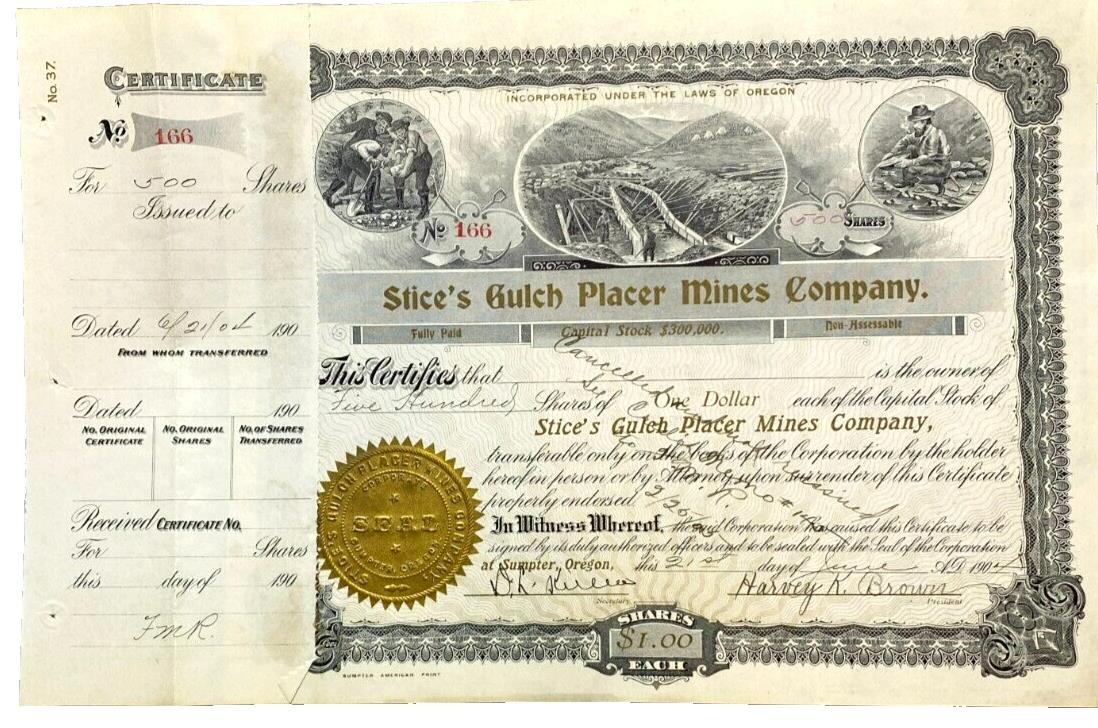 No. 37.
CERTIFICATE
No 166
For 500 Shares
Issued to
Dated 6/21/04 190
FROM WHOM TRANSFERRED
Dated 190
NO. ORIGINAL CERTIFICATE
NO. ORIGINAL SHARES
NO. OF SHARES TRANSFERRED
Received CERTIFICATE NO.
For Shares
this day of 190
F.M.R.
INCORPORATED UNDER THE LAWS OF OREGON
No 166
500 SHARES
Stice's Gulch Placer Mines Company.
Fully Paid
Capital Stock $300,000.
Non-Assessable
This Certifies that is the owner of
Five Hundred Shares of One Dollar each of the Capital Stock of
Stice's Gulch Placer Mines Company,
transferable only on the books of the Corporation by the holder
hereof in person or by Attorney upon surrender of this Certificate
properly endorsed.
In Witness Whereof, the said Corporation has caused this Certificate to be
signed by its duly authorized officers and to be sealed with the Seal of the Corporation
at Sumpter, Oregon, this 21st day of June A.D. 1904
Harvey K. Brown
Secretary.
President
Cancelled
STICES GULCH PLACER MINES COMPANY
CORPORATE
SEAL
SUMPTER, OREGON
SHARES
$1.00
EACH
SUMPTER AMERICAN PRINT